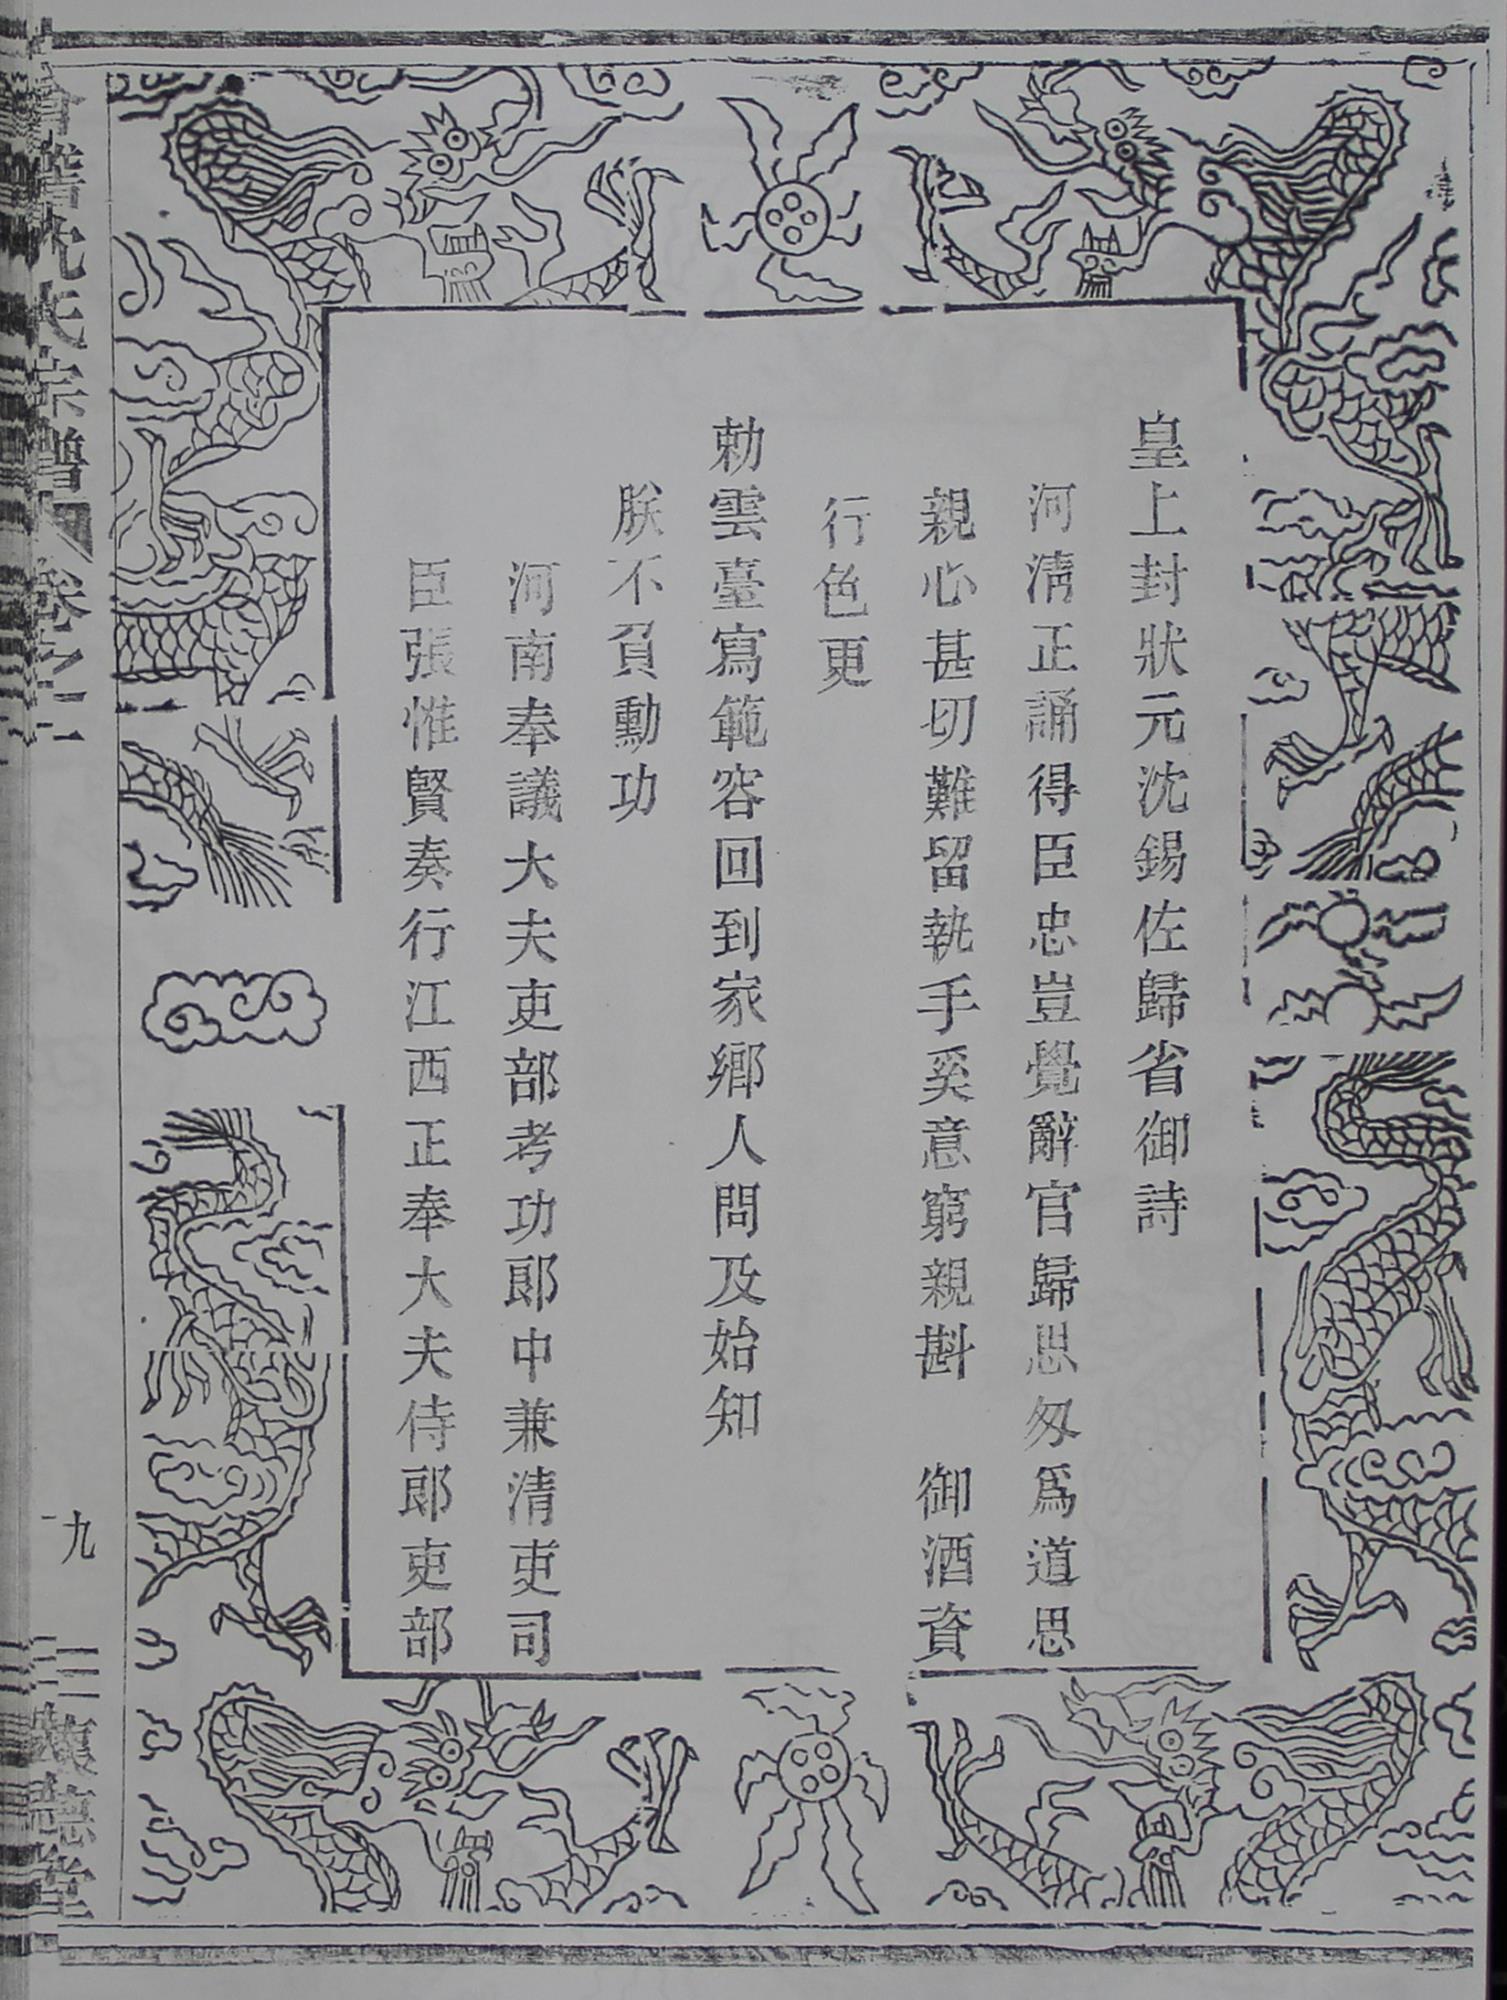 皇上封狀元沈錫佐歸省御詩
河淸正誦得臣忠豈覺辭官歸思匆爲道思
親心甚切難留執手奚意窮親斟　御酒資
行色更
勅雲臺寫範容回到家鄉人問及始知
朕不負勳功
河南奉議大夫吏部考功郎中兼清吏司
臣張惟賢奏行江西正奉大夫侍郎吏部
沈氏宗譜
九
三懷德堂